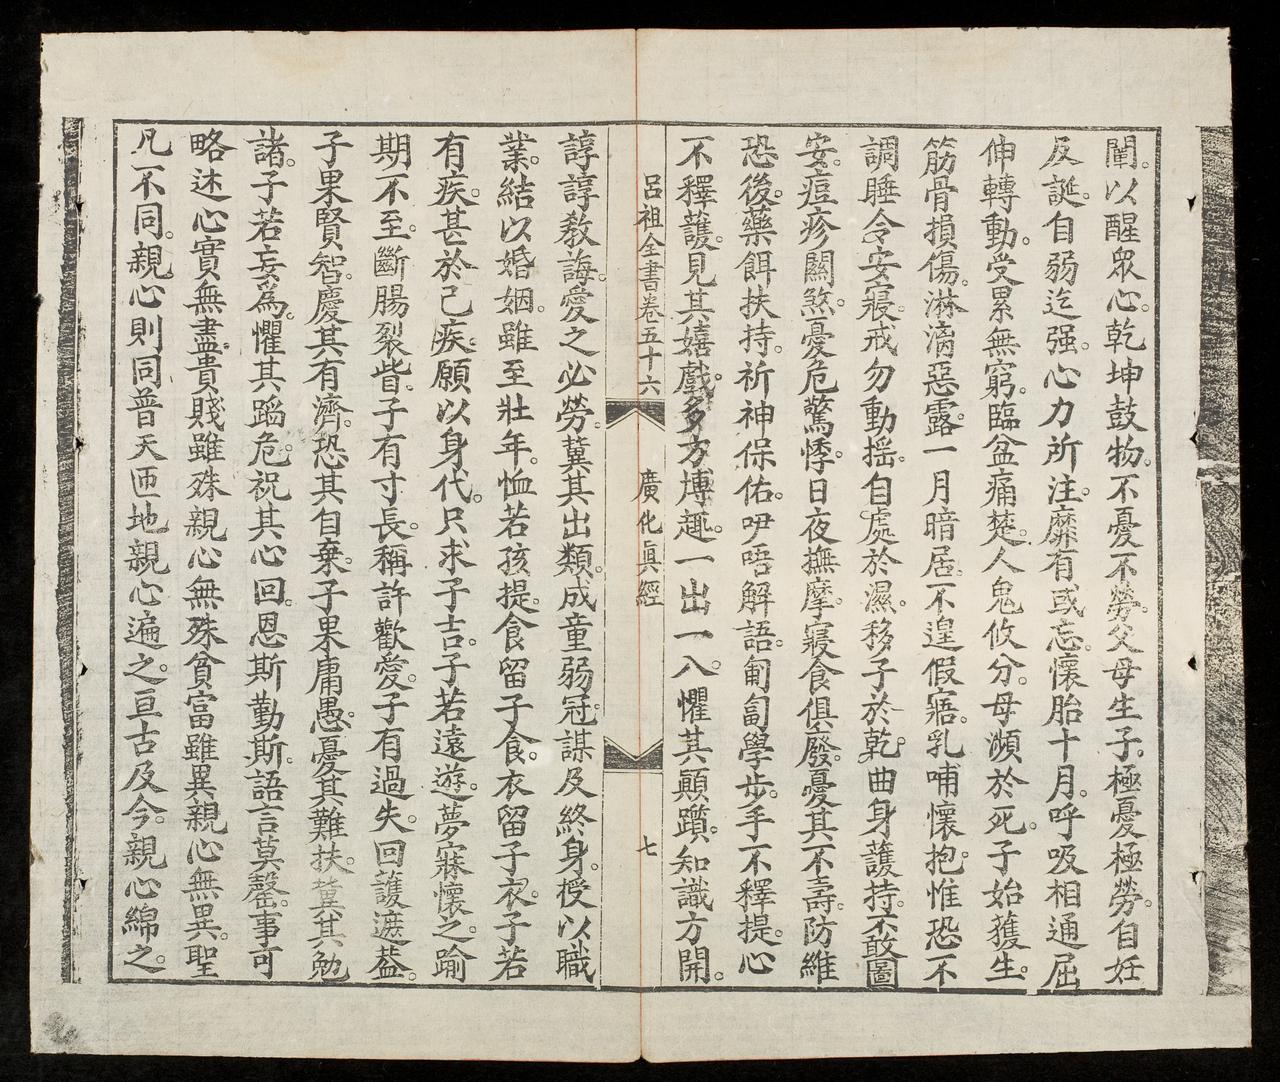 闡。以醒衆心。乾坤鼓物。不憂不勞。父母生子。極憂極勞。自妊
反誕。自弱迄强。心力所注。靡有或忘。懷胎十月。呼吸相通。屈
伸轉動。受累無窮。臨盆痛楚。人鬼攸分。母瀕於死。子始獲生。
筋骨損傷。淋漓惡露。一月暗居。不遑假寤。乳哺懷抱。惟恐不
調。睡令安寢。戒勿動搖。自處於濕。移子於乾。曲身護持。不敢圖
安。痘疹關煞。憂危驚悸。日夜撫摩。寢食俱廢。憂其不壽。防維
恐後。藥餌扶持。祈神保佑。咿唔解語。匍匐學步。手不釋提。心
不釋護。見其嬉戲。多方博趣。一出一入。懼其顚躓。知識方開。
呂祖全書卷五十六 廣化眞經 七
諄諄教誨。愛之必勞。冀其出類。成童弱冠。謀及終身。授以職
業。結以婚姻。雖至壯年。恤若孩提。食留子食。衣留子衣。子若
有疾。甚於己疾。願以身代。只求子吉。子若遠遊。夢寐懷之。踰
期不至。斷腸裂眥。子有寸長。稱許歡愛。子有過失。回護遮葢。
子果賢智。慶其有濟。恐其自棄。子果庸愚。憂其難扶。冀其勉
諸。子若妄爲。懼其蹈危。祝其心回。恩斯勤斯。語言莫罄。事可
略述。心實無盡。貴賤雖殊。親心無殊。貧富雖異。親心無異。聖
凡不同。親心則同。普天匝地。親心遍之。亘古及今。親心綿之。